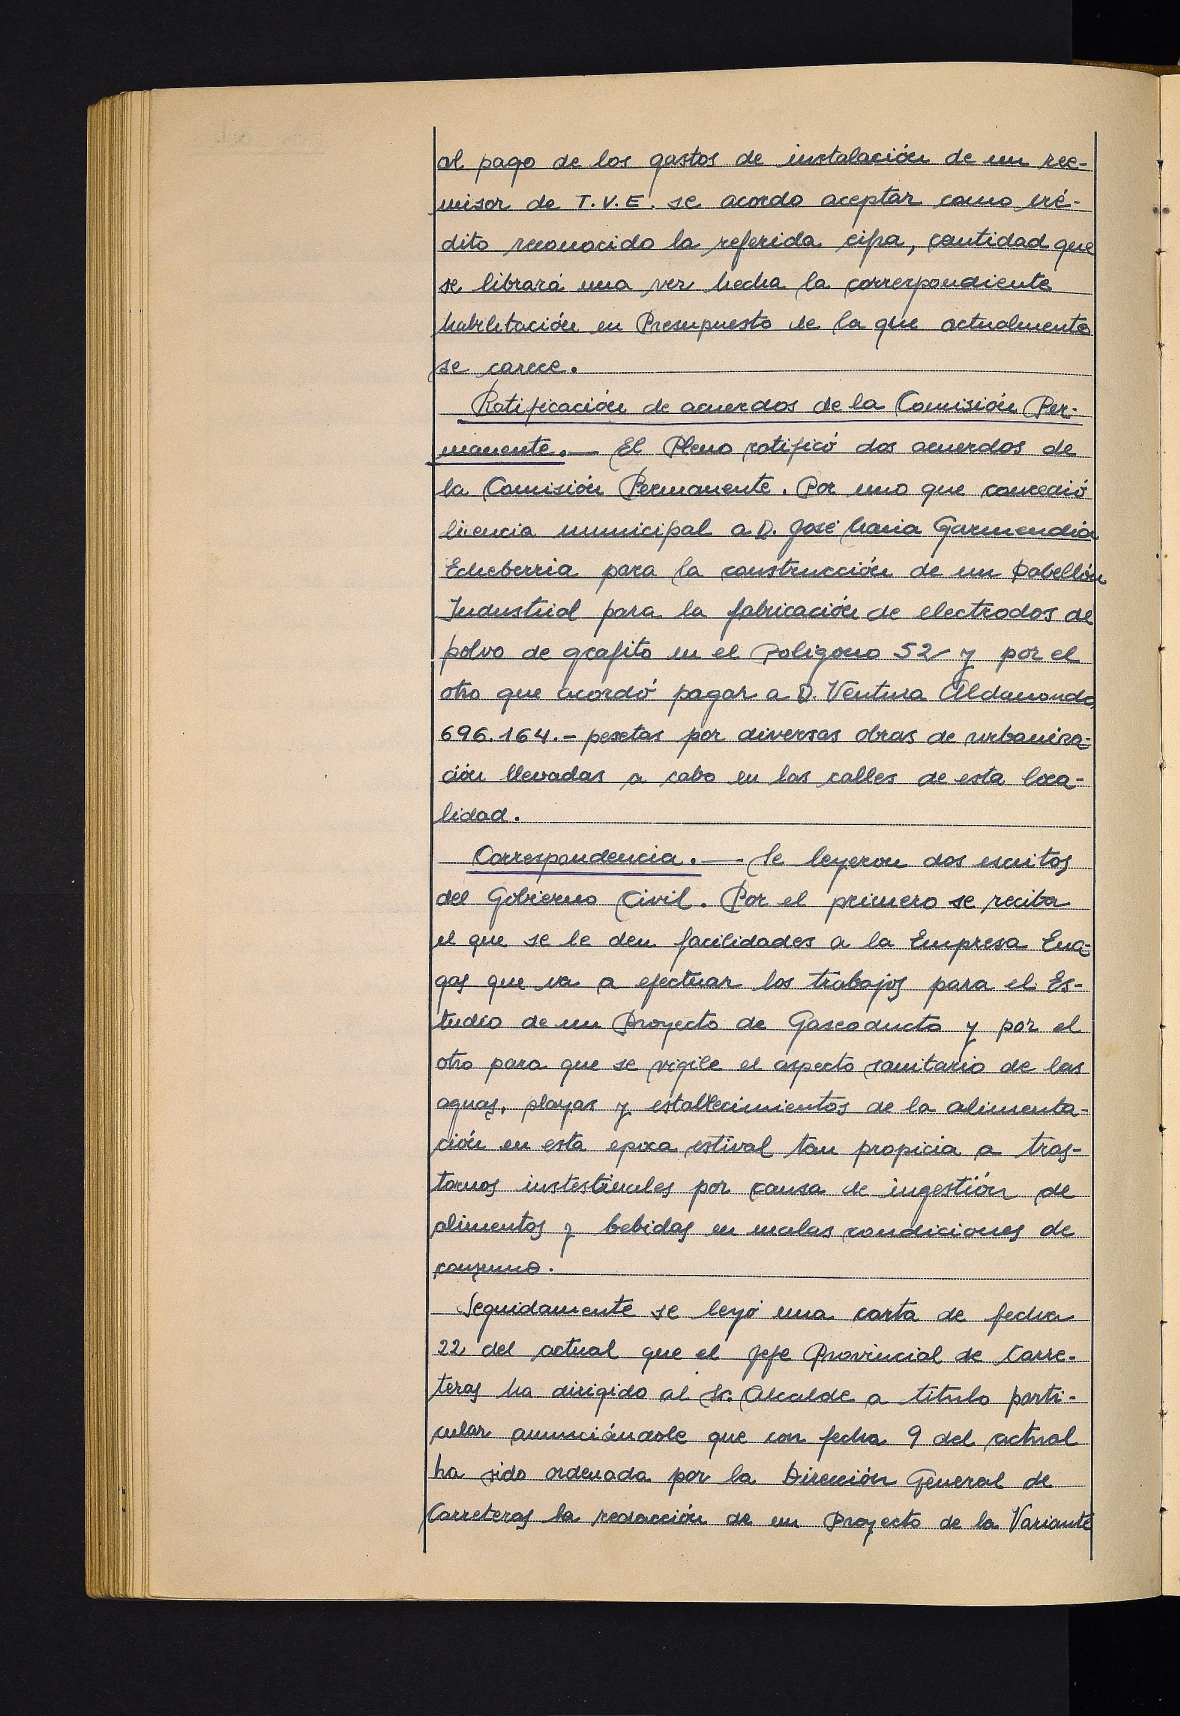 al pago de los gastos de instalación de un ree-
misor de T.V.E. se acordo aceptar como cré-
dito reconocido la referida cifra, cantidad que
se librará una vez hecha la correspondiente
habilitación en Presupuesto de la que actualmente
se carece.
Ratificación de acuerdos de la Comisión Per-
manente.— El Pleno ratificó dos acuerdos de
la Comisión Permanente. Por uno que concedió
licencia municipal a D. José Maria Garmendia
Echeberria para la construcción de un Pabellón
Industrial para la fabricación de electrodos de
polvo de grafito en el Poligono 52 y por el
otro que acordó pagar a D. Ventura Aldanondo
696.164.- pesetas por diversas obras de urbaniza-
ción llevadas a cabo en las calles de esta loca-
lidad.
Correspondencia.— Se leyeron dos escritos
del Gobierno Civil. Por el primero se reciba
el que se le den facilidades a la Empresa Ena-
gas que va a efectuar los trabajos para el Es-
tudio de un Proyecto de Gaseoducto y por el
otro para que se vigile el aspecto sanitario de las
aguas, playas y establecimientos de la alimenta-
ción en esta epoca estival tan propicia a tras-
tornos instestinales por causa de ingestión de
alimentos y bebidas en malas condiciones de
consumo.
Seguidamente se leyó una carta de fecha
22 del actual que el Jefe Provincial de Carre-
teras ha dirigido al Sr. Alcalde a titulo parti-
cular anunciándole que con fecha 9 del actual
ha sido ordenada por la Dirección General de
Carreteras la redacción de un Proyecto de la Variante